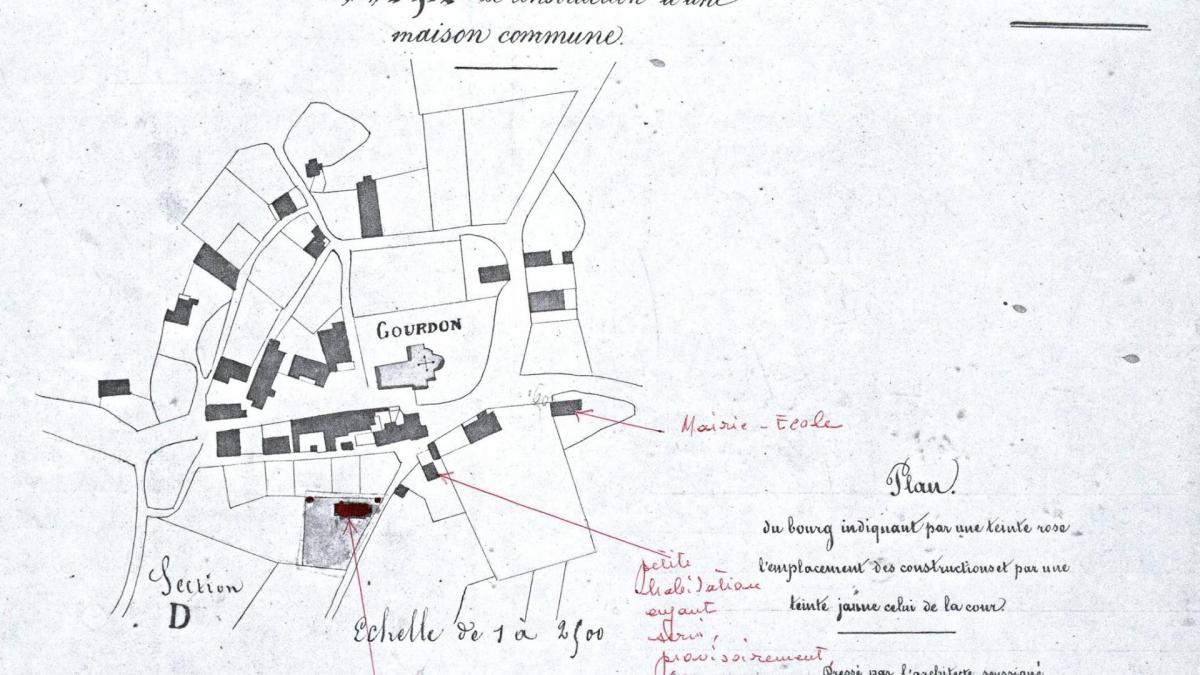 de construction d'une
maison commune.
GOURDON
Mairie - École
Plan.
du bourg indiquant par une teinte rose
l'emplacement des constructions et par une
teinte jaune celui de la cour.
petite
habitation
ayant
servi,
provisoirement
Section
D
Echelle de 1 à 2500
Dressé par l'architecte soussigné